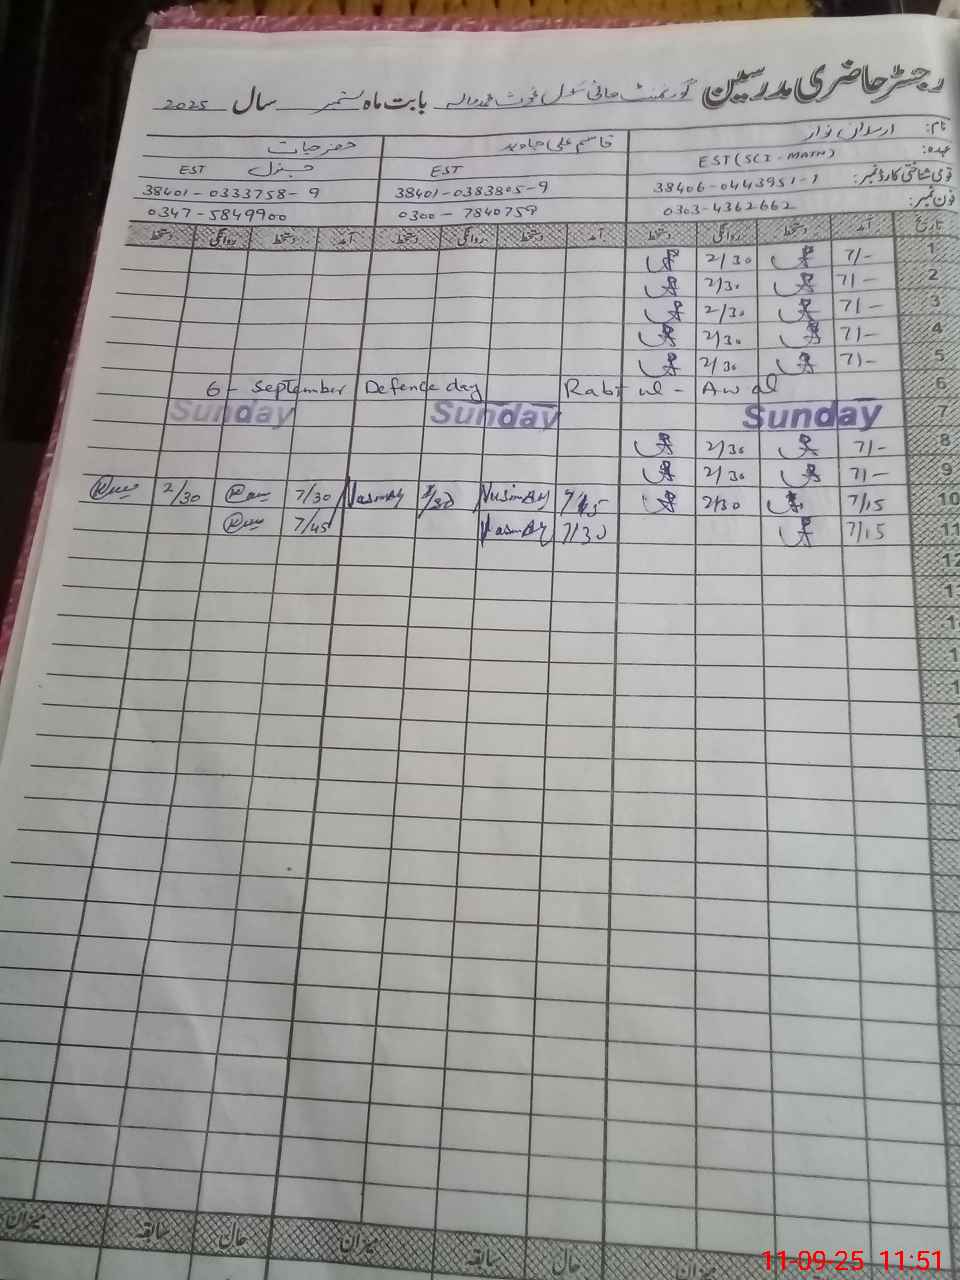 رجسٹر حاضری مدرسین گورنمنٹ ہائی سکول غوث محمد والہ بابت ماہ ستمبر سال 2025
نام: ارسلان نواز قاسم علی جاوید خضر حیات
عہدہ: EST (SCI-MATH) EST EST جنرل
قومی شناختی کارڈ نمبر: 38406-0443951-1 38401-0383805-9 38401-0333758-9
فون نمبر: 0303-4362662 0300-7840759 0347-5849900
تاریخ آمد دستخط روانگی دستخط آمد دستخط روانگی دستخط آمد دستخط روانگی دستخط
1 7/- 2/30
2 7/- 2/30
3 7/- 2/30
4 7/- 2/30
5 7/- 2/30
6 6- September Defence day Rabi ul-Awal
7 Sunday Sunday Sunday
8 7/- 2/30
9 7/- 2/30
10 7/15 2/30 7/30 2/30
11 7/15 7/30 7/45
12
میزان حال سابقہ میزان حال سابقہ میزان
11-09-25 11:51